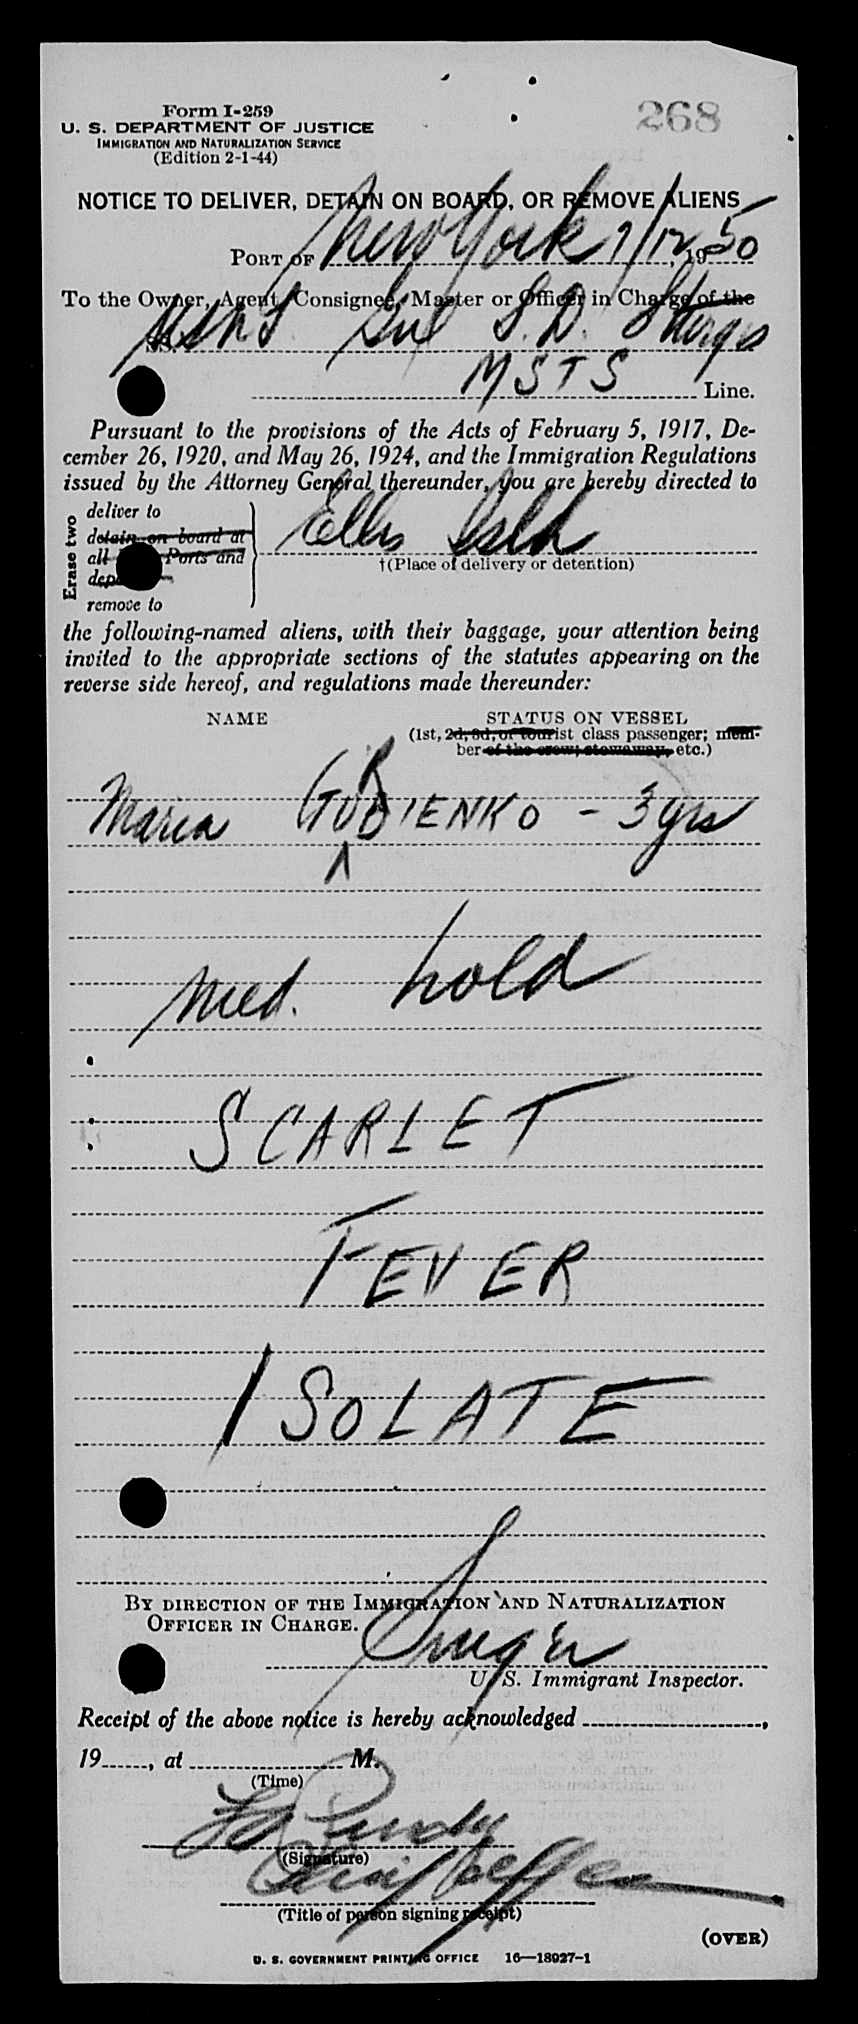 268
Form I-259
U. S. DEPARTMENT OF JUSTICE
IMMIGRATION AND NATURALIZATION SERVICE
(Edition 2-1-44)
NOTICE TO DELIVER, DETAIN ON BOARD, OR REMOVE ALIENS
PORT OF New York 7/12, 1950
To the Owner, Agent, Consignee, Master or Officer in Charge of the
SS. USNS Gul S.D. Sturgis
MSTS Line.
Pursuant to the provisions of the Acts of February 5, 1917, De-
cember 26, 1920, and May 26, 1924, and the Immigration Regulations
issued by the Attorney General thereunder, you are hereby directed to
Erase two
deliver to
detain on board at
all Ports and
remove to
Ellis Isld
†(Place of delivery or detention)
the following-named aliens, with their baggage, your attention being
invited to the appropriate sections of the statutes appearing on the
reverse side hereof, and regulations made thereunder:
NAME
STATUS ON VESSEL
(1st, 2d, 3d, or tourist class passenger; mem-
ber of the crew; stowaway, etc.)
Maria GURBIENKO - 3 yrs
Med. hold
SCARLET
FEVER
ISOLATE
BY DIRECTION OF THE IMMIGRATION AND NATURALIZATION
OFFICER IN CHARGE.
U. S. Immigrant Inspector.
Receipt of the above notice is hereby acknowledged ,
19 , at M.
(Time)
(Signature)
(Title of person signing receipt)
(OVER)
U. S. GOVERNMENT PRINTING OFFICE 16—18927-1